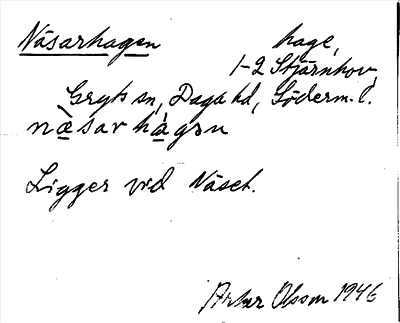 Näsarhagen hage,
1-2 Stjärnhov,
Gryts sn, Daga hd, Söderm. l.
næ̀sarhá̱gɘn
Ligger vid Näset.
Artur Olsson 1946